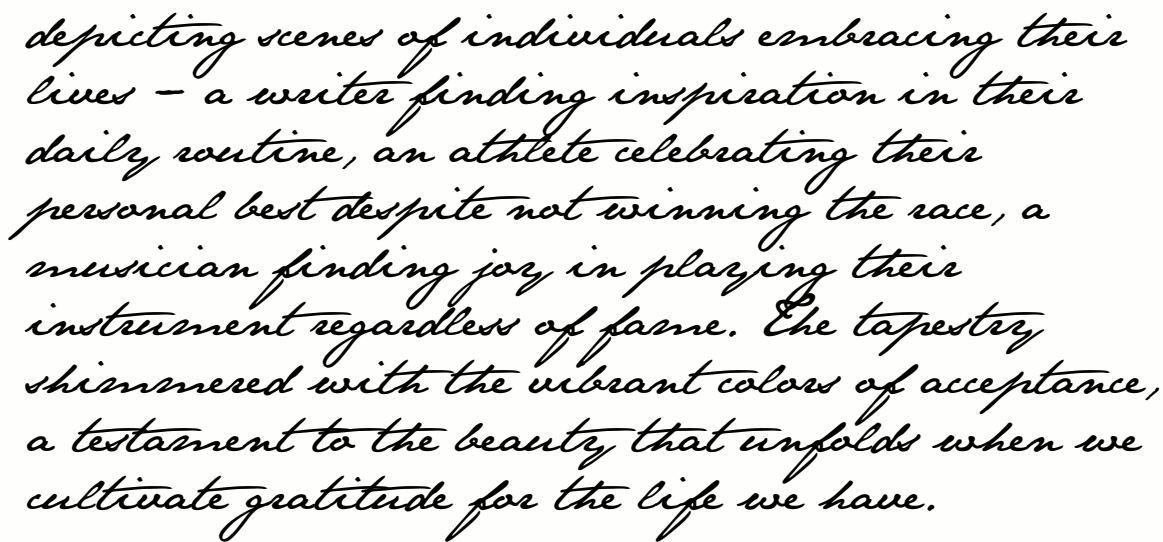 depicting scenes of individuals embracing their
lives – a writer finding inspiration in their
daily routine, an athlete celebrating their
personal best despite not winning the race, a
musician finding joy in playing their
instrument regardless of fame. The tapestry
shimmered with the vibrant colors of acceptance,
a testament to the beauty that unfolds when we
cultivate gratitude for the life we have.